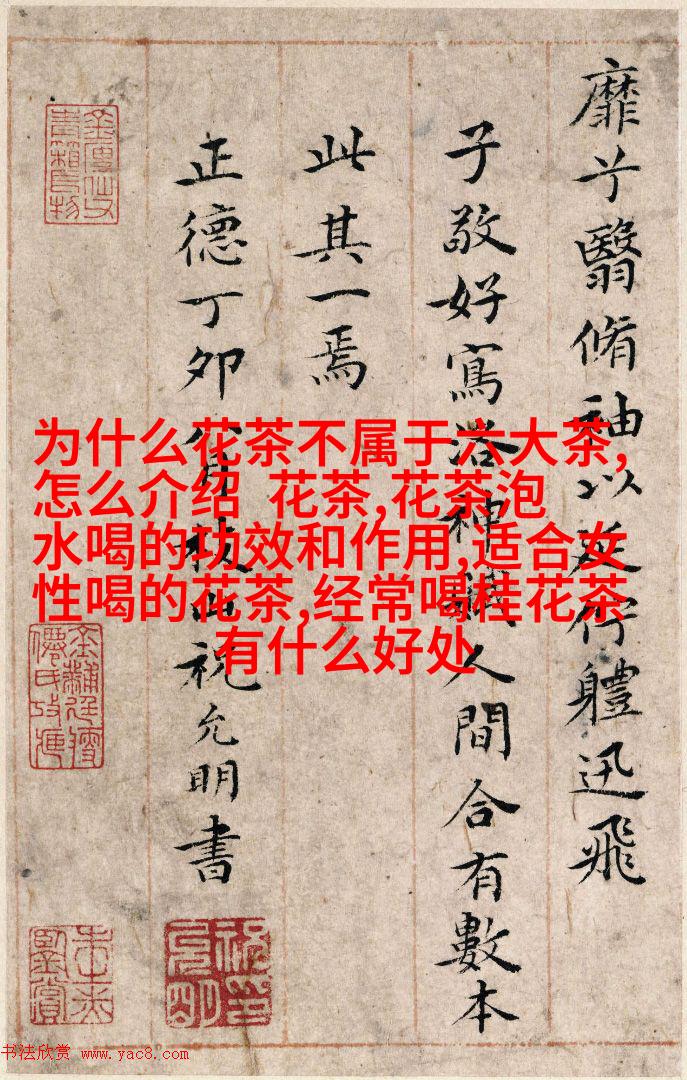 靡兮翳脩袖以延佇體迅飛
子敬好寫洛神賦人間合有數本
此其一焉
正德丁卯枝山祝允明書
为什么花茶不属于六大茶,
怎么介绍 花茶,花茶泡
水喝的功效和作用,适合女
性喝的花茶,经常喝桂花茶
有什么好处
书法欣赏 www.yac8.com